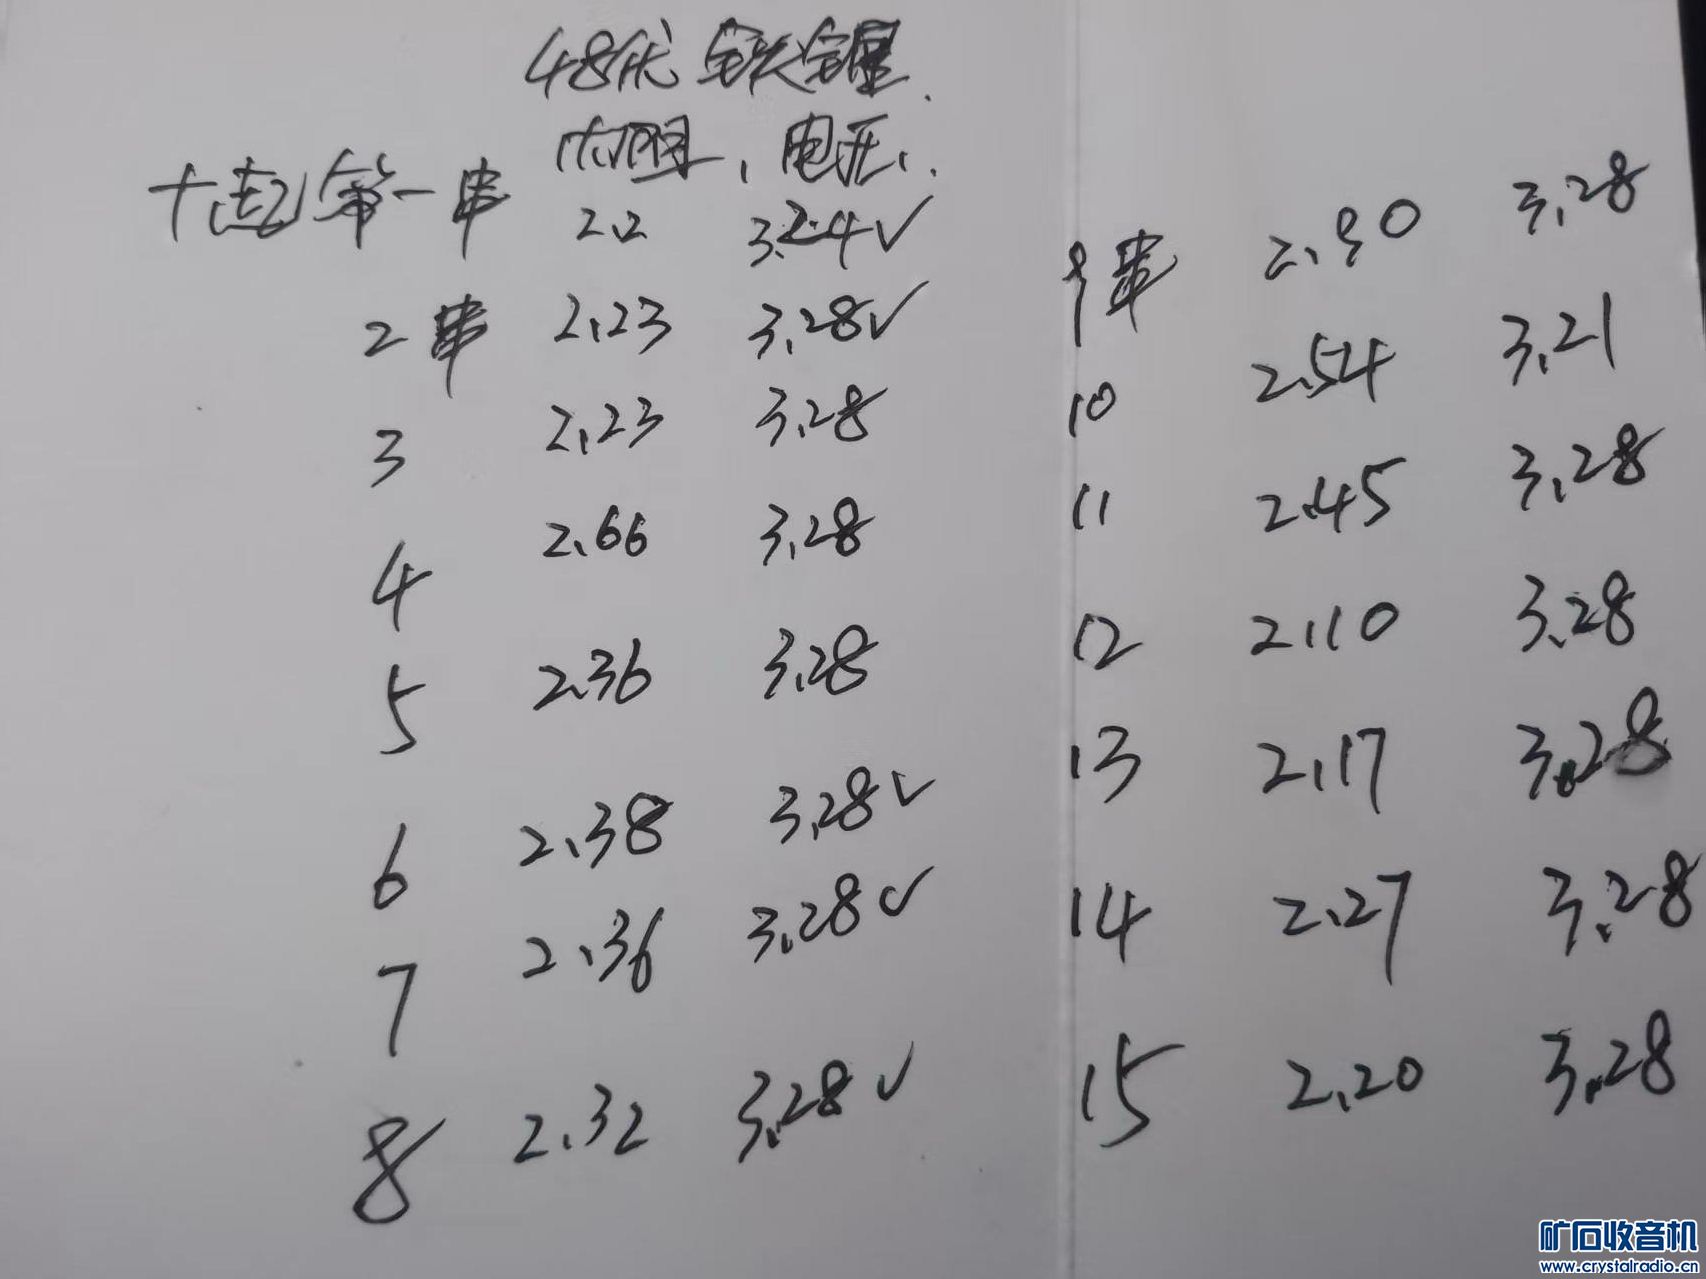 48伏 铁锂.
内阻、电压、
十起第一串 2.2 3.24✓
2串 2.23 3.28✓
3 2.23 3.28
4 2.66 3.28
5 2.36 3.28
6 2.38 3.28✓
7 2.36 3.28✓
8 2.32 3.28✓
9串 2.90 3.28
10 2.54 3.21
11 2.45 3.28
12 2.10 3.28
13 2.17 3.28
14 2.27 3.28
15 2.20 3.28
矿石收音机
www.crystalradio.cn